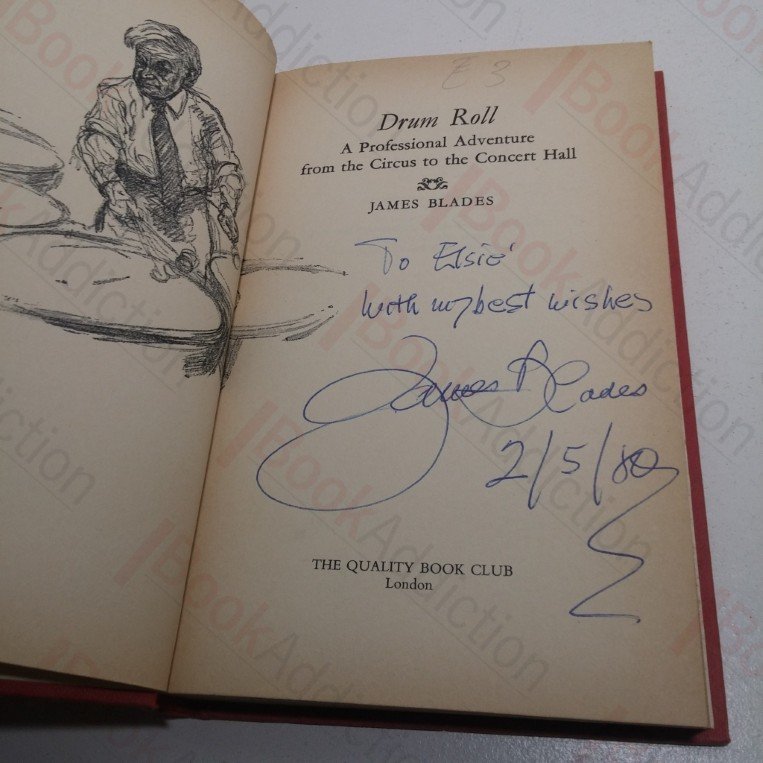 £3
Drum Roll
A Professional Adventure
from the Circus to the Concert Hall
JAMES BLADES
To Elsie'
With my best wishes
James Blades
2/5/80
THE QUALITY BOOK CLUB
London
BookAddiction